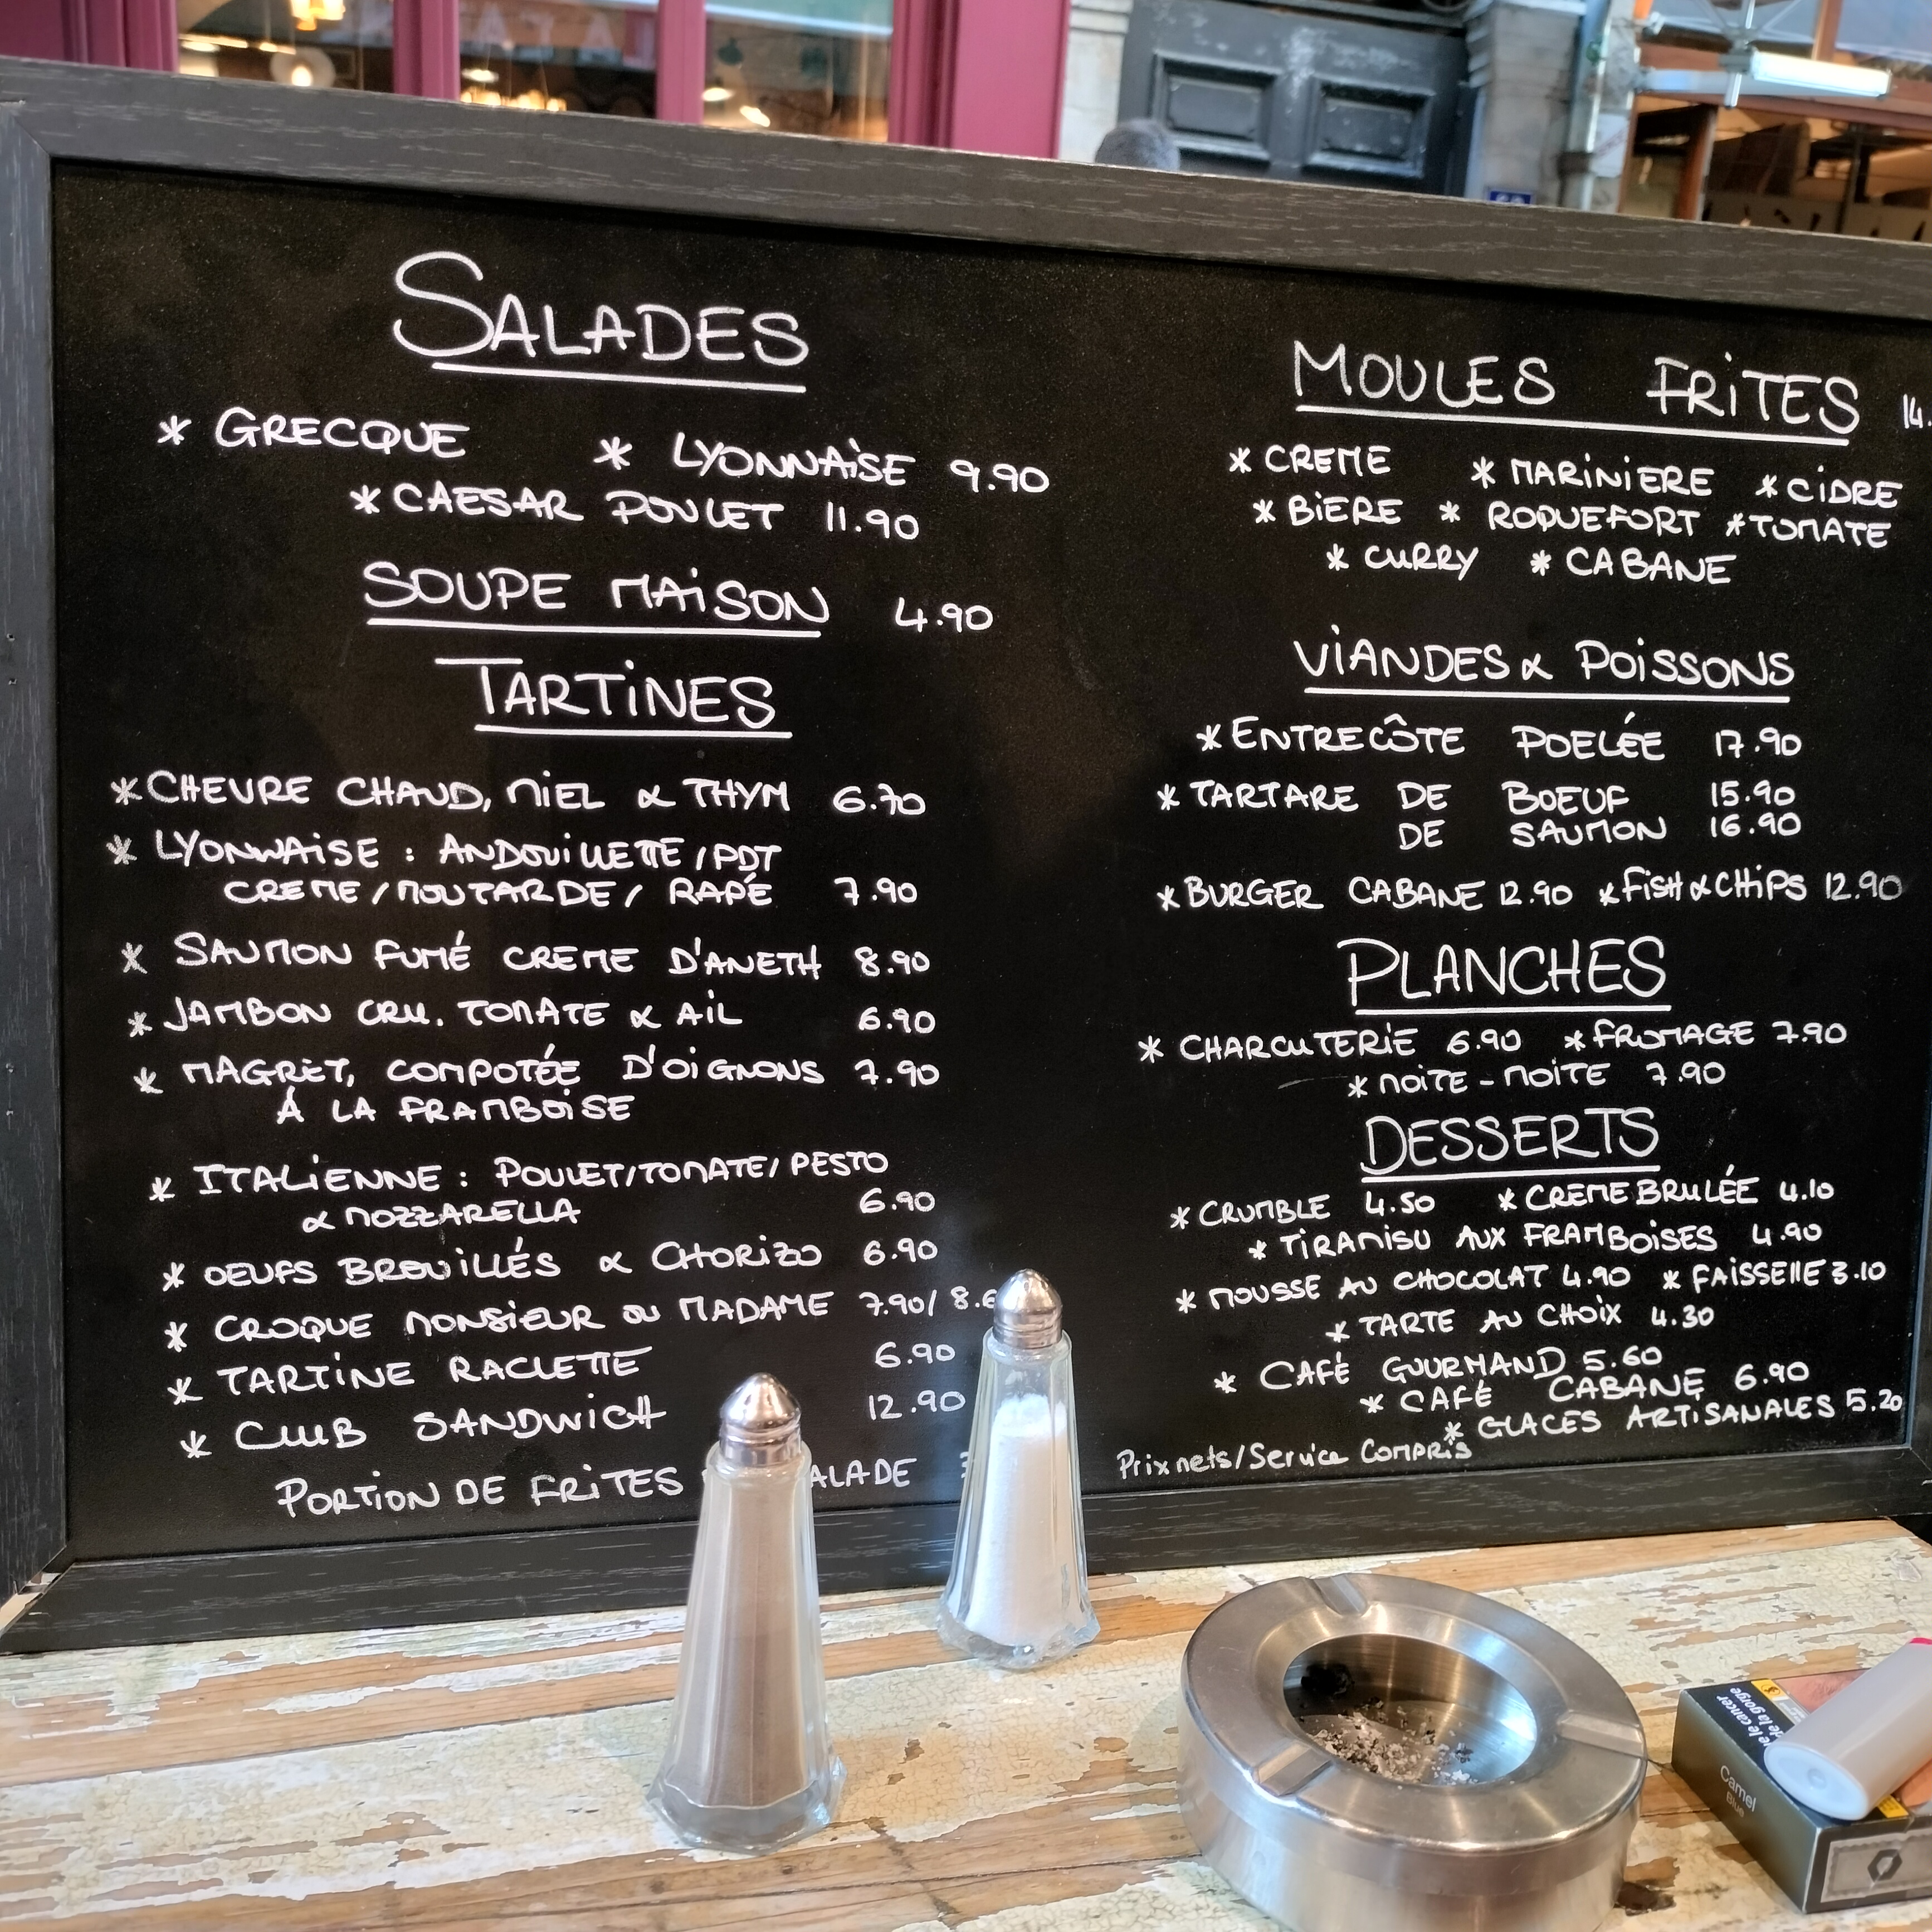 SALADES
* GRECQUE * LYONNAISE 9.90
* CAESAR POULET 11.90
SOUPE MAISON 4.90
TARTINES
* CHEVRE CHAUD, MIEL & THYM 6.70
* LYONNAISE : ANDOUILLETTE / PDT
CREME / MOUTARDE / RAPÉ 7.90
* SAUMON FUMÉ CREME D'ANETH 8.90
* JAMBON CRU. TOMATE & AIL 6.90
* MAGRET, COMPOTÉE D'OIGNONS 7.90
À LA FRAMBOISE
* ITALIENNE : POULET/TOMATE/PESTO
& MOZZARELLA 6.90
* OEUFS BROUILLÉS & CHORIZO 6.90
* CROQUE MONSIEUR OU MADAME 7.90/ 8.
* TARTINE RACLETTE 6.90
* CLUB SANDWICH 12.90
PORTION DE FRITES ALADE
MOULES FRITES 14.
* CREME * MARINIERE * CIDRE
* BIERE * ROQUEFORT * TOMATE
* CURRY * CABANE
VIANDES & POISSONS
* ENTRECÔTE POELÉE 17.90
* TARTARE DE BOEUF 15.90
DE SAUMON 16.90
* BURGER CABANE 12.90 * FISH & CHIPS 12.90
PLANCHES
* CHARCUTERIE 6.90 * FROMAGE 7.90
* MOITE - MOITE 7.90
DESSERTS
* CRUMBLE 4.50 * CREME BRULÉE 4.10
* TIRAMISU AUX FRAMBOISES 4.90
* MOUSSE AU CHOCOLAT 4.90 * FAISSELLE 3.10
* TARTE AU CHOIX 4.30
* CAFÉ GOURMAND 5.60
* CAFÉ CABANE 6.90
* GLACES ARTISANALES 5.20
Prix nets/Service COMPRIS
le cancer
de la gorge
Camel
Blue